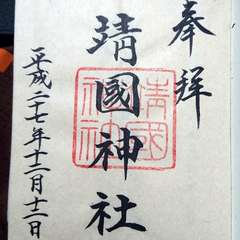 奉拝
靖國神社
靖國神社
平成二十七年十二月十二日